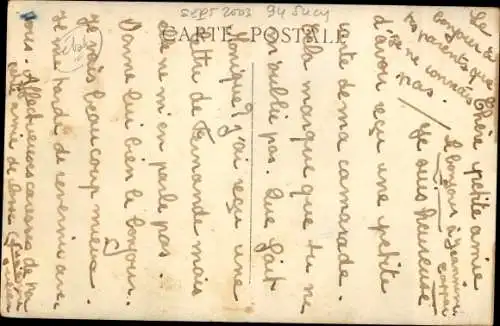 SEPT 2003 94 Sucy
CARTE POSTALE
Chère petite amie
Je suis heureuse
d'avoir reçu une petite
carte de ma camarade.
cela marque que tu ne
m'oublie pas. Que fait
Monique? J'ai reçu une
lettre de Fernande mais
elle ne m'en parle pas.
Donne lui bien le bonjour.
Je vais beaucoup mieux.
Je me tarde de revenir avec
vous. Affectueuses caresses de
petite amie de
bonjour à
tes parents que
je ne connais
pas.
le bonjour à Jeannine